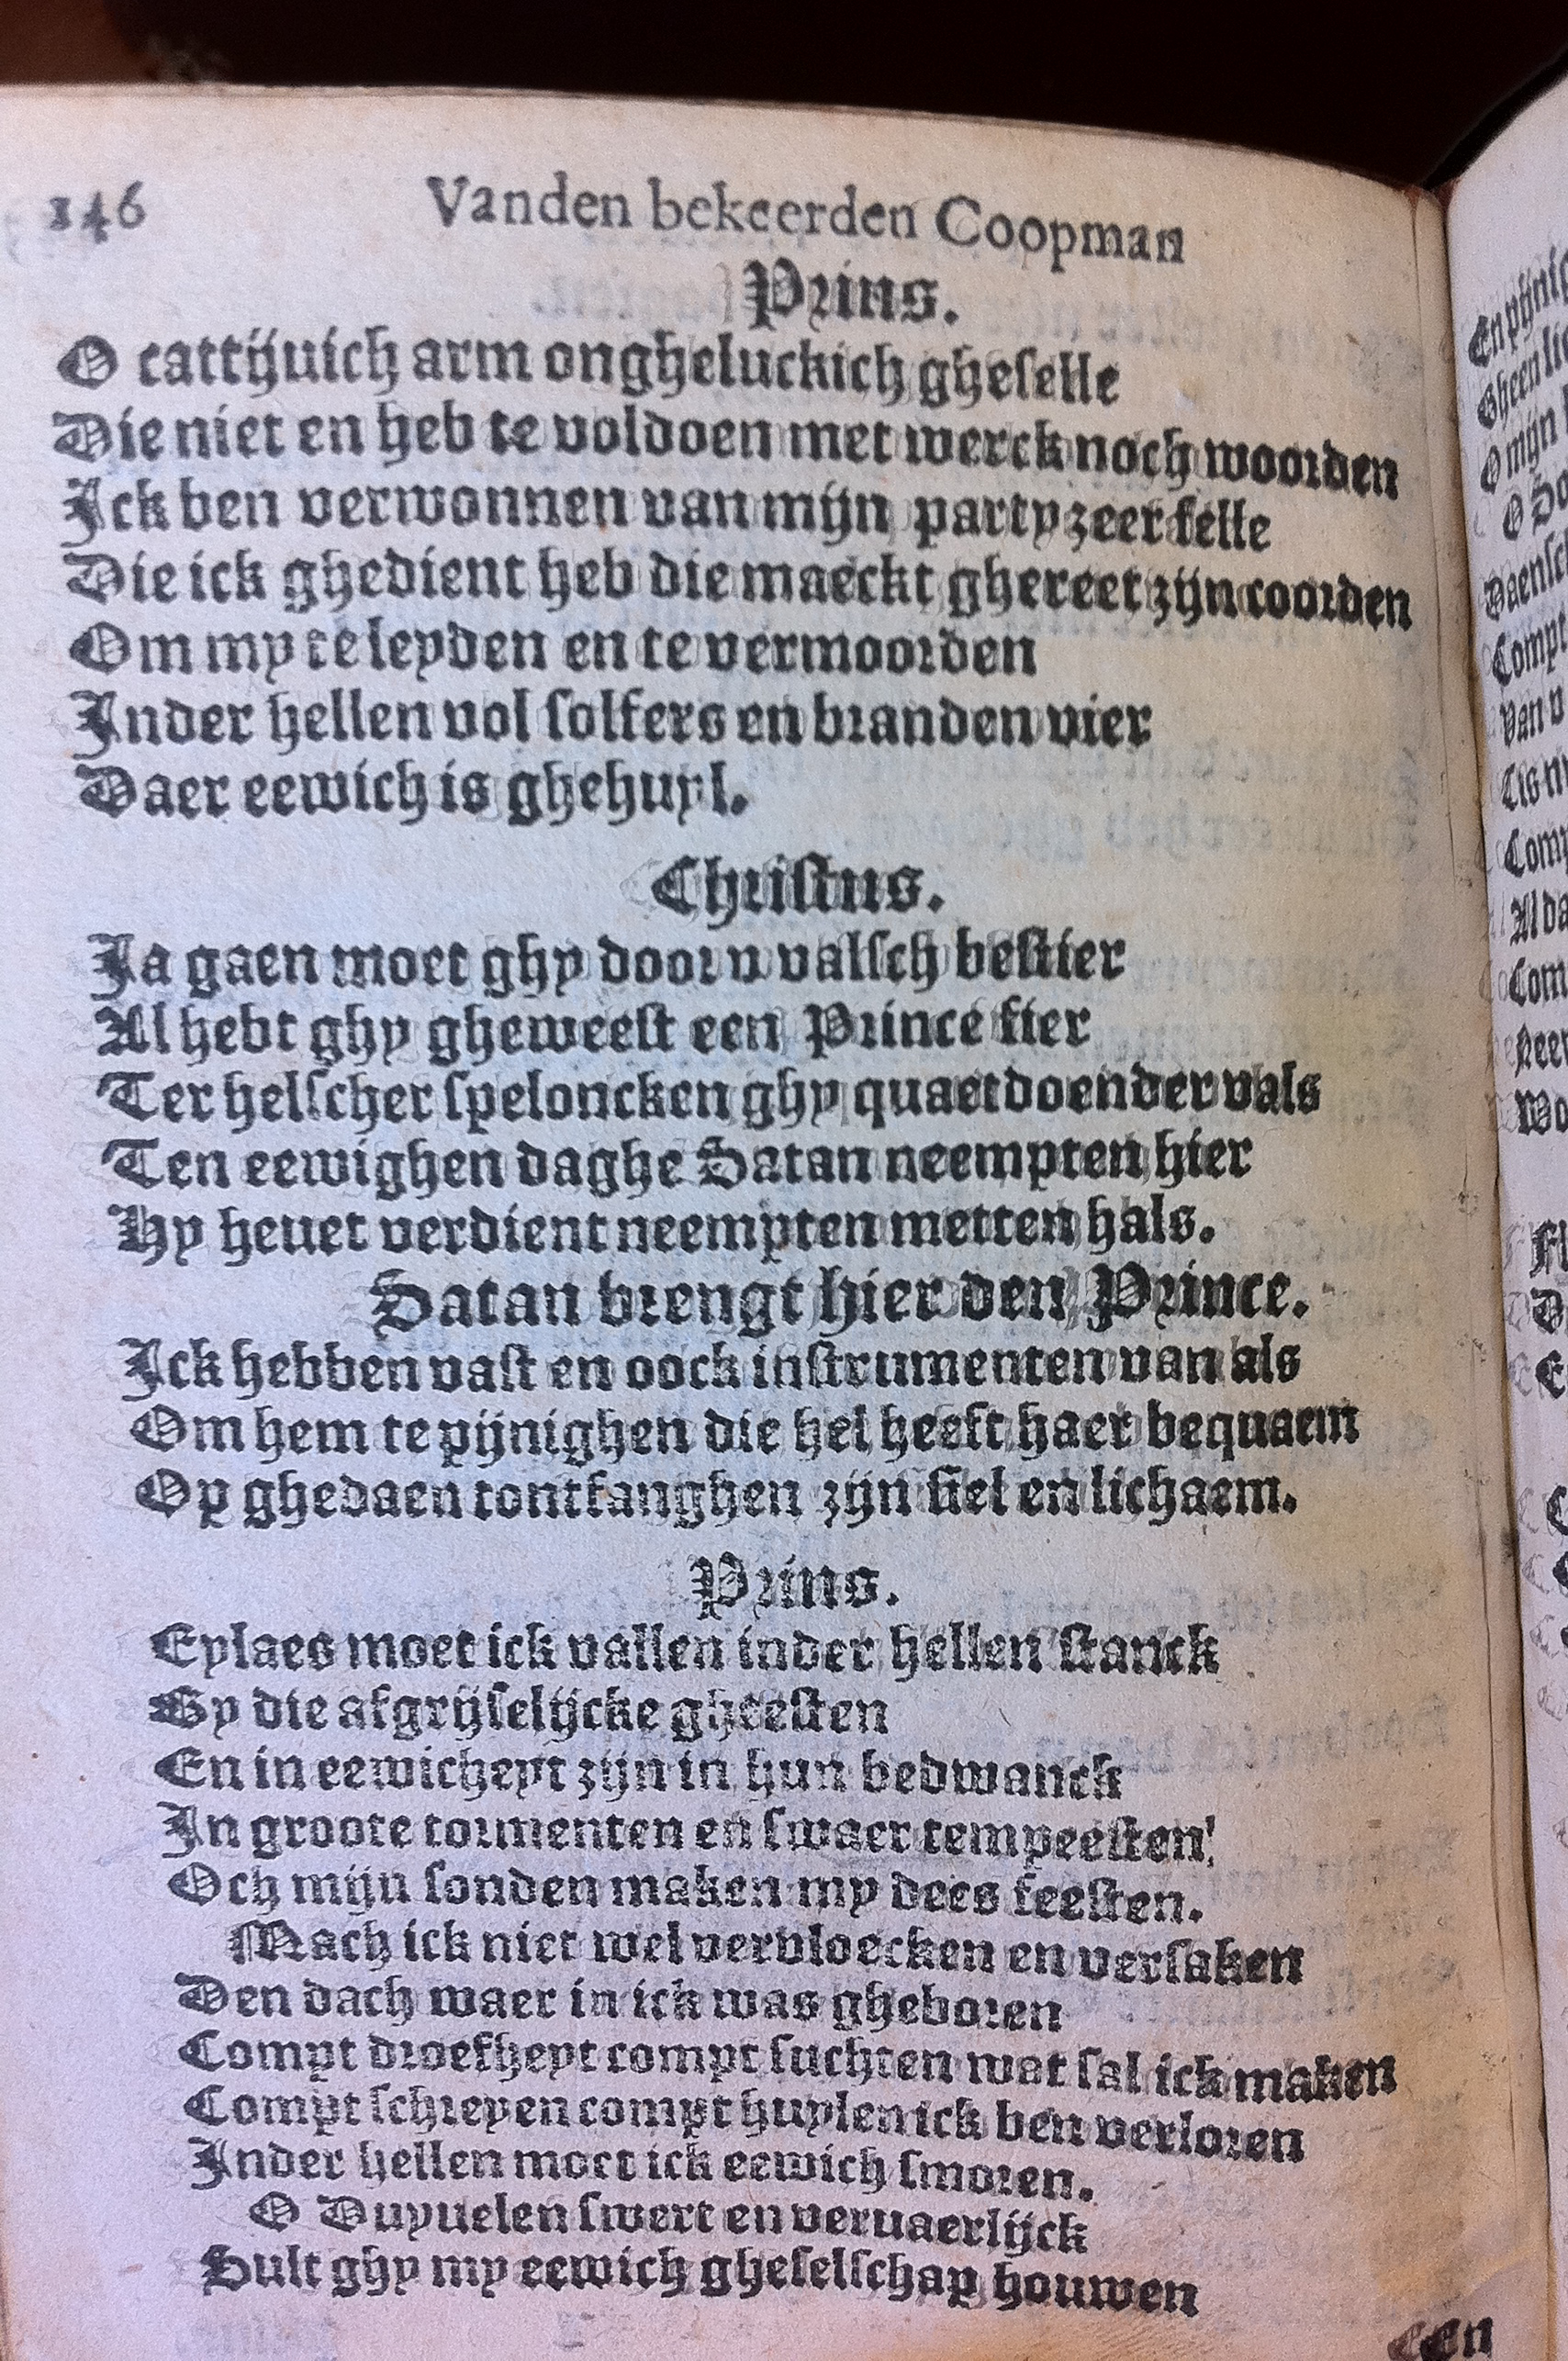 146 Vanden bekeerden Coopman
Prins.
O cattijuich arm ongheluckich gheselle
Die niet en heb te voldoen met werck noch woorden
Ick ben verwonnen van mijn party zeer felle
Die ick ghedient heb die maeckt ghereet zijn coorden
Om my te leyden en te vermoorden
Inder hellen vol solfers en branden vier
Daer eewich is ghehuyl.
Christus.
Ia gaen moet ghy door u valsch bestier
Al hebt ghy gheweest een Prince fier
Ter helscher speloncken ghy quaetdoender vals
Ten eewighen daghe Satan neempten hier
Hy heuet verdient neempten metten hals.
Satan brengt hier den Prince.
Ick hebben vast en oock instrumenten van als
Om hem te pijnighen die hel heeft haer bequaem
Op ghedaen tontfanghen zijn siel en lichaem.
Prins.
Eylaes moet ick vallen inder hellen stanck
By die afgrijselijcke gheesten
En in eewicheyt zijn in hun bedwanck
In groote tormenten en swaer tempeesten!
Och mijn sonden maken my dees feesten.
Mach ick niet wel vervloecken en versaken
Den dach waer in ick was gheboren
Compt droefheyt compt suchten wat sal ick maken
Compt schreyen compt huylen ick ben verloren
Inder hellen moet ick eewich smoren.
O Duyuelen swert en veruaerlijck
Sult ghy my eewich gheselschap houwen
Een
En pijnis
Gheen
O mijn
O
Compt
Van
Al da